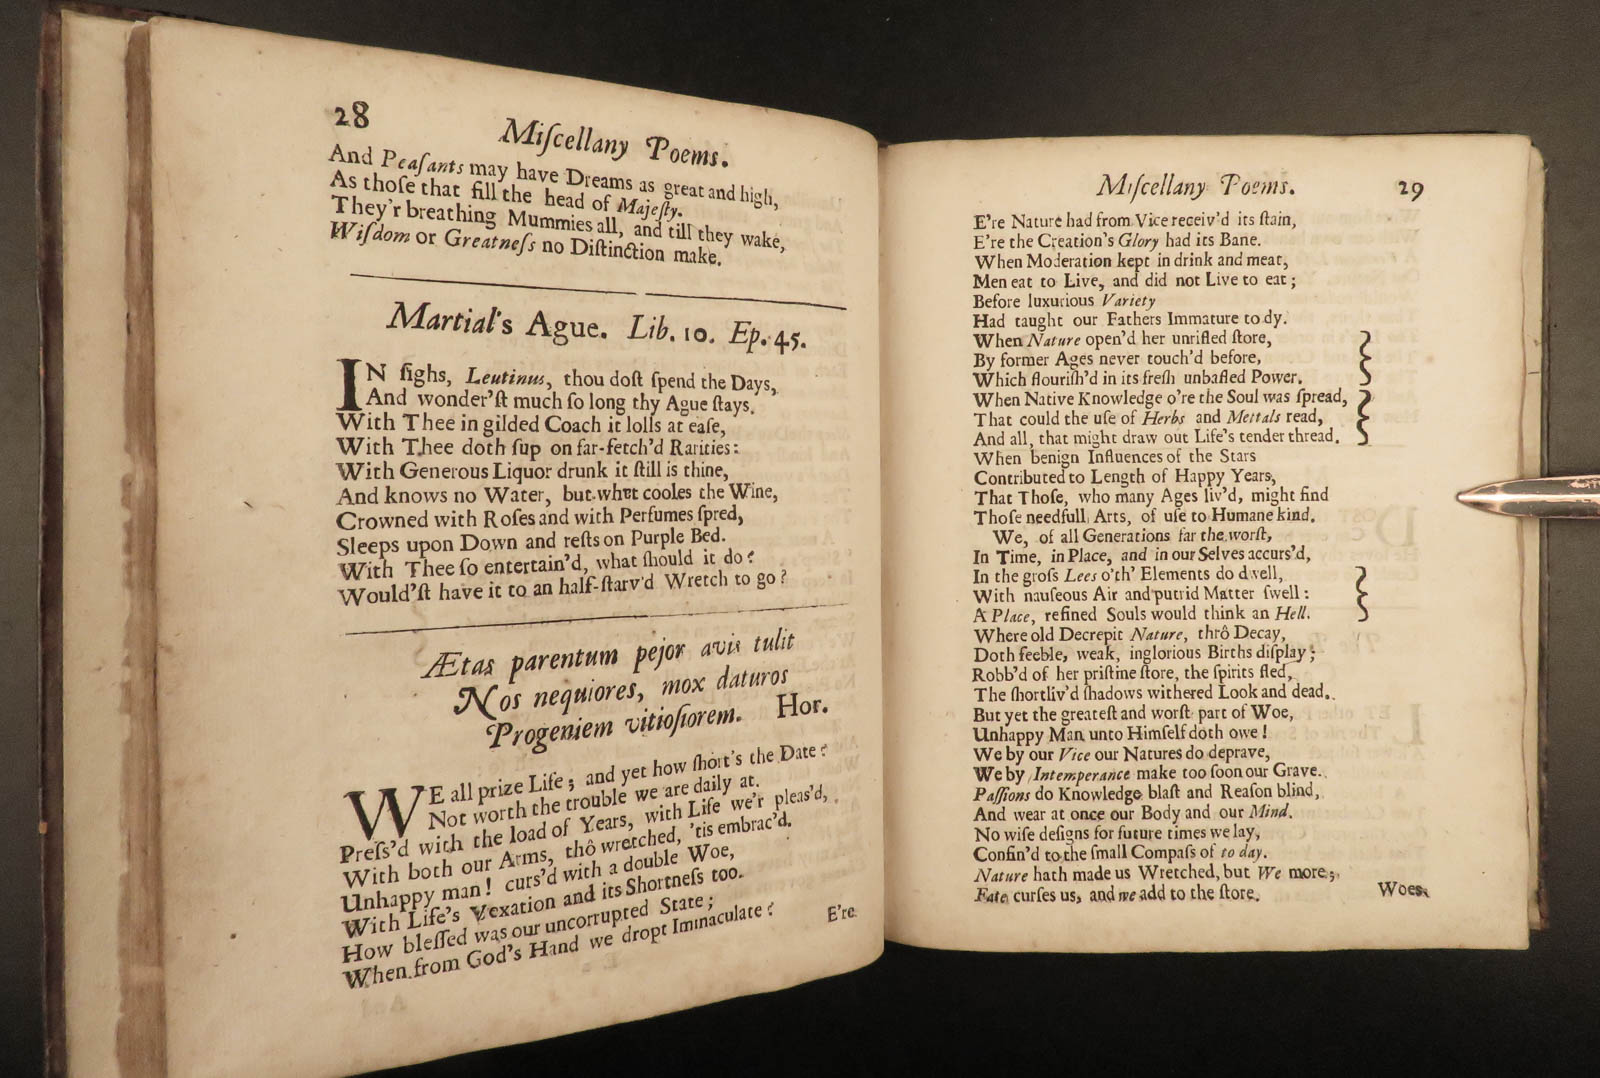 28
Miſcellany Poems.
And Peaſants may have Dreams as great and high,
As thoſe that fill the head of Majeſty.
They'r breathing Mummies all, and till they wake,
Wiſdom or Greatneſs no Diſtinction make.
Martial's Ague. Lib. 10. Ep. 45.
IN ſighs, Leutinus, thou doſt ſpend the Days,
And wonder'ſt much ſo long thy Ague ſtays.
With Thee in gilded Coach it lolls at eaſe,
With Thee doth ſup on far-fetch'd Rarities:
With Generous Liquor drunk it ſtill is thine,
And knows no Water, but what cooles the Wine,
Crowned with Roſes and with Perfumes ſpred,
Sleeps upon Down and reſts on Purple Bed.
With Thee ſo entertain'd, what ſhould it do?
Would'ſt have it to an half-ſtarv'd Wretch to go?
Ætas parentum pejor avis tulit
Nos nequiores, mox daturos
Progeniem vitioſiorem. Hor.
WE all prize Life; and yet how ſhort's the Date?
Not worth the trouble we are daily at.
Preſs'd with the load of Years, with Life we'r pleas'd,
With both our Arms, thô wretched, 'tis embrac'd.
Unhappy man! curs'd with a double Woe,
With Life's Vexation and its Shortneſs too.
How bleſſed was our uncorrupted State;
When from God's Hand we dropt Immaculate?
E're
Miſcellany Poems.
29
E're Nature had from Vice receiv'd its ſtain,
E're the Creation's Glory had its Bane.
When Moderation kept in drink and meat,
Men eat to Live, and did not Live to eat;
Before luxurious Variety
Had taught our Fathers Immature to dy.
When Nature open'd her unrifled ſtore,
By former Ages never touch'd before,
Which flouriſh'd in its freſh unbafled Power.
When Native Knowledge o're the Soul was ſpread,
That could the uſe of Herbs and Mettals read,
And all, that might draw out Life's tender thread.
When benign Influences of the Stars
Contributed to Length of Happy Years,
That Thoſe, who many Ages liv'd, might find
Thoſe needfull Arts, of uſe to Humane kind.
We, of all Generations far the worſt,
In Time, in Place, and in our Selves accurs'd,
In the groſs Lees o'th' Elements do dwell,
With nauſeous Air and putrid Matter ſwell:
A Place, refined Souls would think an Hell.
Where old Decrepit Nature, thrô Decay,
Doth feeble, weak, inglorious Births diſplay;
Robb'd of her priſtine ſtore, the ſpirits fled,
The ſhortliv'd ſhadows withered Look and dead.
But yet the greateſt and worſt part of Woe,
Unhappy Man unto Himſelf doth owe!
We by our Vice our Natures do deprave,
We by Intemperance make too ſoon our Grave.
Paſſions do Knowledge blaſt and Reaſon blind,
And wear at once our Body and our Mind.
No wiſe deſigns for future times we lay,
Confin'd to the ſmall Compaſs of to day.
Nature hath made us Wretched, but We more;
Fate curſes us, and we add to the ſtore.
Woes,